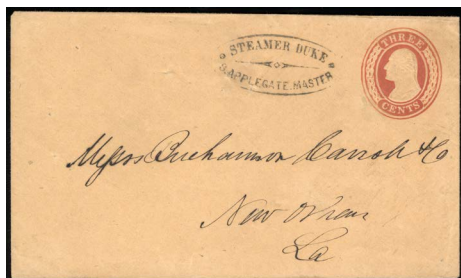 STEAMER DUKE
S. APPLEGATE. MASTER
THREE
CENTS
Messrs Buchannon Carroll & Co
New Orleans
La